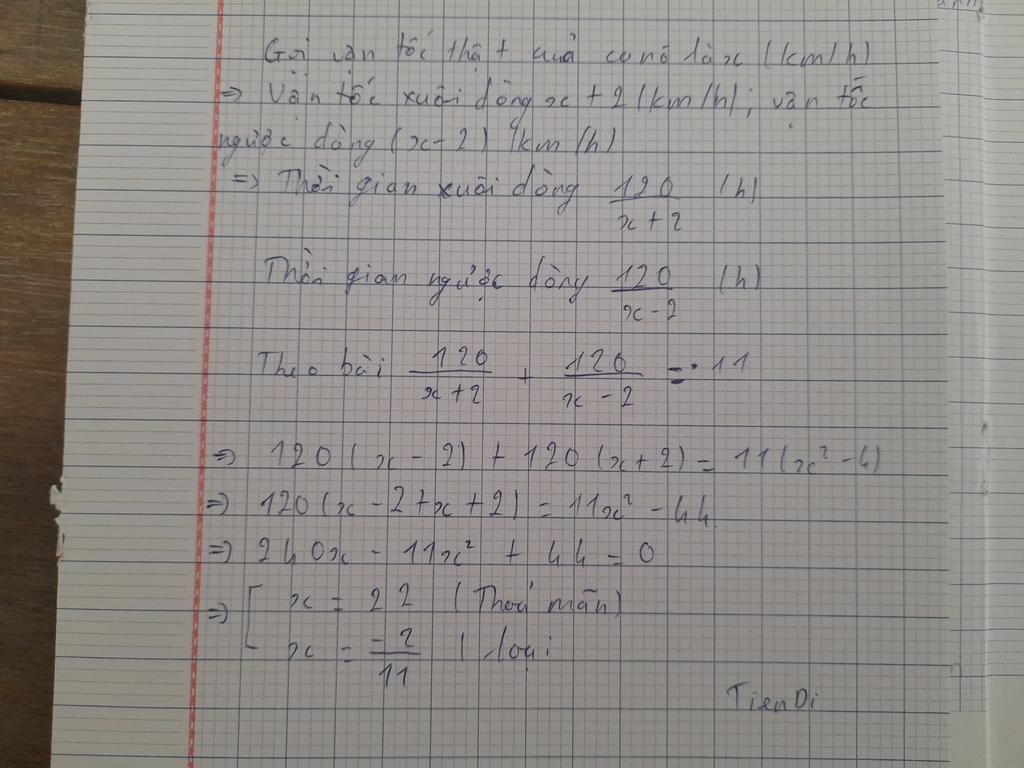 Gọi vận tốc thật của ca nô là x (km/h)
=> Vận tốc xuôi dòng x + 2 (km/h); vận tốc
ngược dòng (x - 2) (km/h)
=> Thời gian xuôi dòng 120/(x + 2) (h)
Thời gian ngược dòng 120/(x - 2) (h)
Theo bài 120/(x + 2) + 120/(x - 2) = 11
=> 120(x - 2) + 120(x + 2) = 11(x² - 4)
=> 120(x - 2 + x + 2) = 11x² - 44
=> 240x - 11x² + 44 = 0
=> [ x = 22 (Thoả mãn)
x = -2/11 ( loại
Tien Di